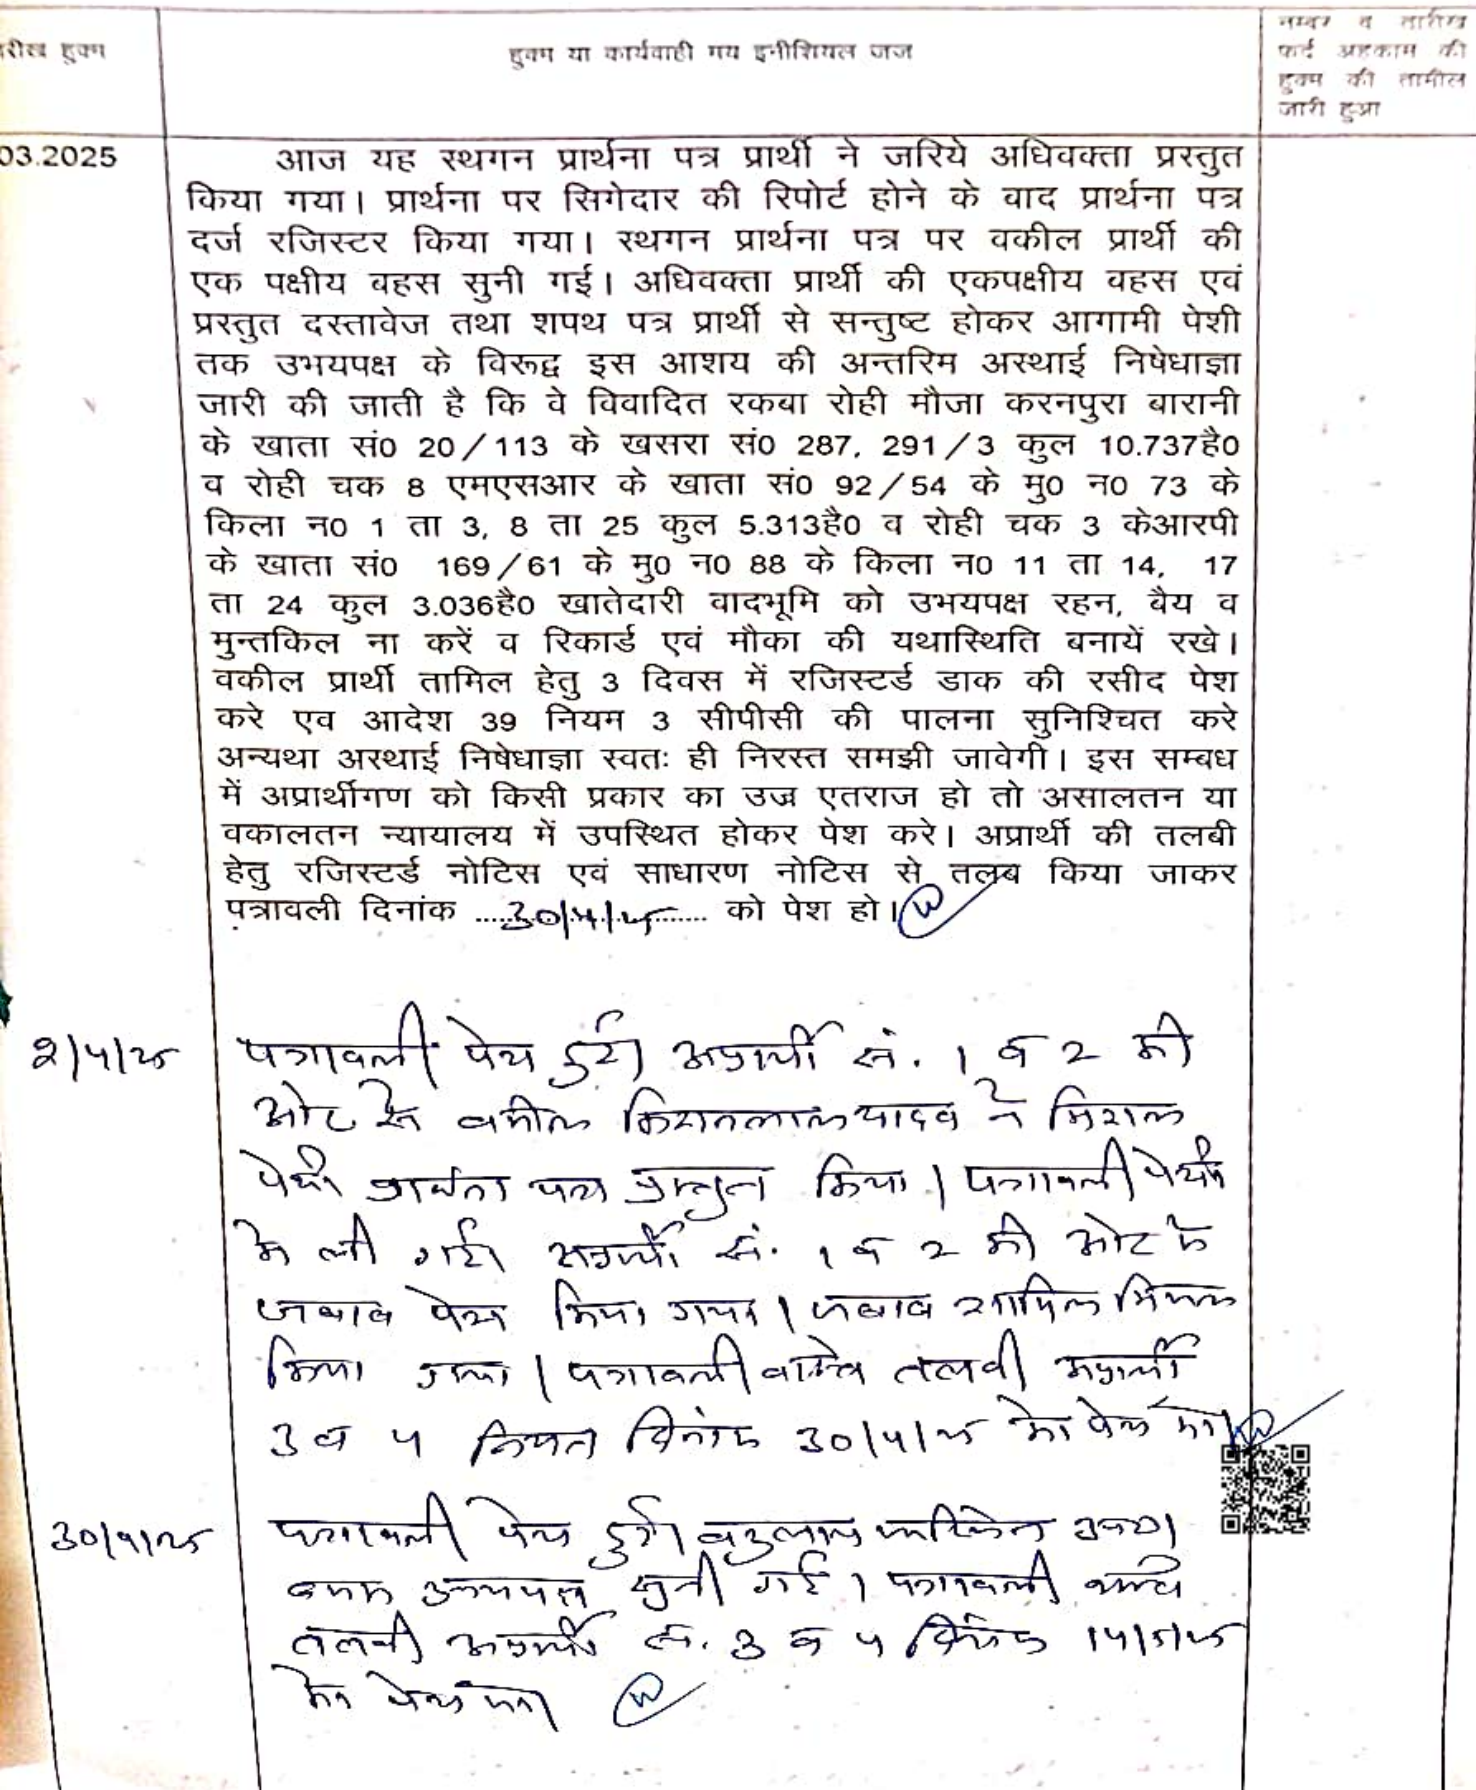 रीख हुक्म
हुक्म या कार्यवाही मय इनीशियल जज
नम्बर व तारीख
फर्द अहकाम की
हुक्म की तामील
जारी हुआ
03.2025
आज यह स्थगन प्रार्थना पत्र प्रार्थी ने जरिये अधिवक्ता प्रस्तुत
किया गया। प्रार्थना पर सिगेदार की रिपोर्ट होने के वाद प्रार्थना पत्र
दर्ज रजिस्टर किया गया। स्थगन प्रार्थना पत्र पर वकील प्रार्थी की
एक पक्षीय बहस सुनी गई। अधिवक्ता प्रार्थी की एकपक्षीय वहस एवं
प्रस्तुत दस्तावेज तथा शपथ पत्र प्रार्थी से सन्तुष्ट होकर आगामी पेशी
तक उभयपक्ष के विरूद्व इस आशय की अन्तरिम अस्थाई निषेधाज्ञा
जारी की जाती है कि वे विवादित रकबा रोही मौजा करनपुरा बारानी
के खाता सं0 20/113 के खसरा सं0 287, 291/3 कुल 10.737है0
व रोही चक 8 एमएसआर के खाता सं0 92/54 के मु0 न0 73 के
किला न0 1 ता 3, 8 ता 25 कुल 5.313है0 व रोही चक 3 केआरपी
के खाता सं0 169/61 के मु0 न0 88 के किला न0 11 ता 14, 17
ता 24 कुल 3.036है0 खातेदारी वादभूमि को उभयपक्ष रहन, बैय व
मुन्तकिल ना करें व रिकार्ड एवं मौका की यथास्थिति बनायें रखे।
वकील प्रार्थी तामिल हेतु 3 दिवस में रजिस्टर्ड डाक की रसीद पेश
करे एव आदेश 39 नियम 3 सीपीसी की पालना सुनिश्चित करे
अन्यथा अस्थाई निषेधाज्ञा स्वतः ही निरस्त समझी जावेगी। इस सम्बध
में अप्रार्थीगण को किसी प्रकार का उज्र एतराज हो तो असालतन या
वकालतन न्यायालय में उपस्थित होकर पेश करे। अप्रार्थी की तलबी
हेतु रजिस्टर्ड नोटिस एवं साधारण नोटिस से तलब किया जाकर
पत्रावली दिनांक ....30/4/25.... को पेश हो।
2/4/25
पत्रावली पेश हुई। अप्रार्थी सं. 1 व 2 की
ओर से वकील किशनलाल यादव ने मिशल
पेशी प्रार्थना पत्र प्रस्तुत किया। पत्रावली पेशी
में ली गई। अप्रार्थी सं. 1 व 2 की ओर से
जवाब पेश किया गया। जवाब शामिल मिशल
किया गया। पत्रावली वास्ते तलबी अप्रार्थी
3 व 4 नियत दिनांक 30/4/25 को पेश हो।
30/4/25
पत्रावली पेश हुई।
बहस उभयपक्ष सुनी गई। पत्रावली वास्ते
तलबी अप्रार्थी सं. 3 व 4 दिनांक 14/5/25
को पेश हो।